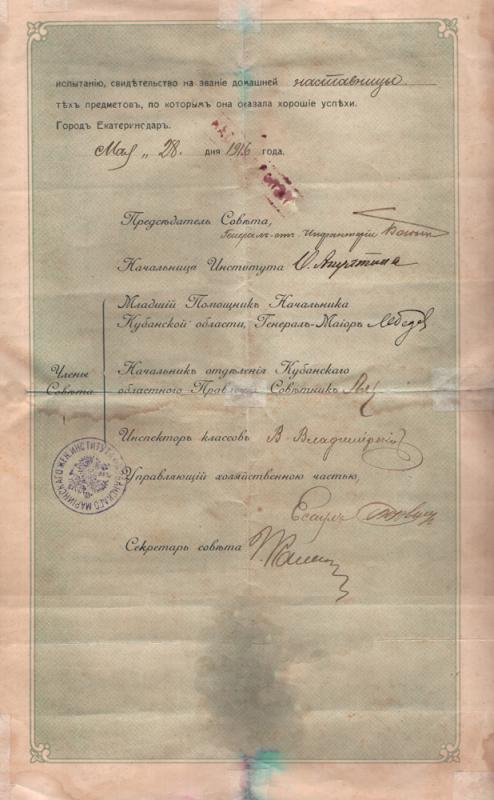 испытанію, свидѣтельство на званіе домашней наставницы
тѣхъ предметовъ, по которымъ она оказала хорошіе успѣхи.
Городъ Екатеринодаръ.
Мая „ 28. дня 1916 года.
Предсѣдатель Совѣта,
Генералъ-отъ-Инфантеріи
Начальница Института
Младшій Помощникъ Начальника
Кубанской области, Генералъ-Маіоръ
Члены
Совѣта
Начальникъ отдѣленія Кубанскаго
областного Правленія Совѣтникъ
Инспекторъ классовъ В. Владимірскій
Управляющій хозяйственною частью,
Есаулъ
Секретарь совѣта
КУБАНСКАГО МАРІИНСКАГО ЖЕН. ИНСТИТУТА